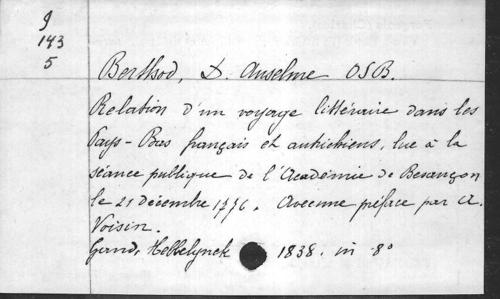 J
143
5
Berthod, D. Anselme OSB.
Relation d'un voyage littéraire dans les
Pays-Bas français et autrichiens, lue à la
séance publique de l'Académie de Besançon
le 21 décembre 1776. Avec une préface par A.
Voisin.
Gand, Hebbelynck 1838. in 8°